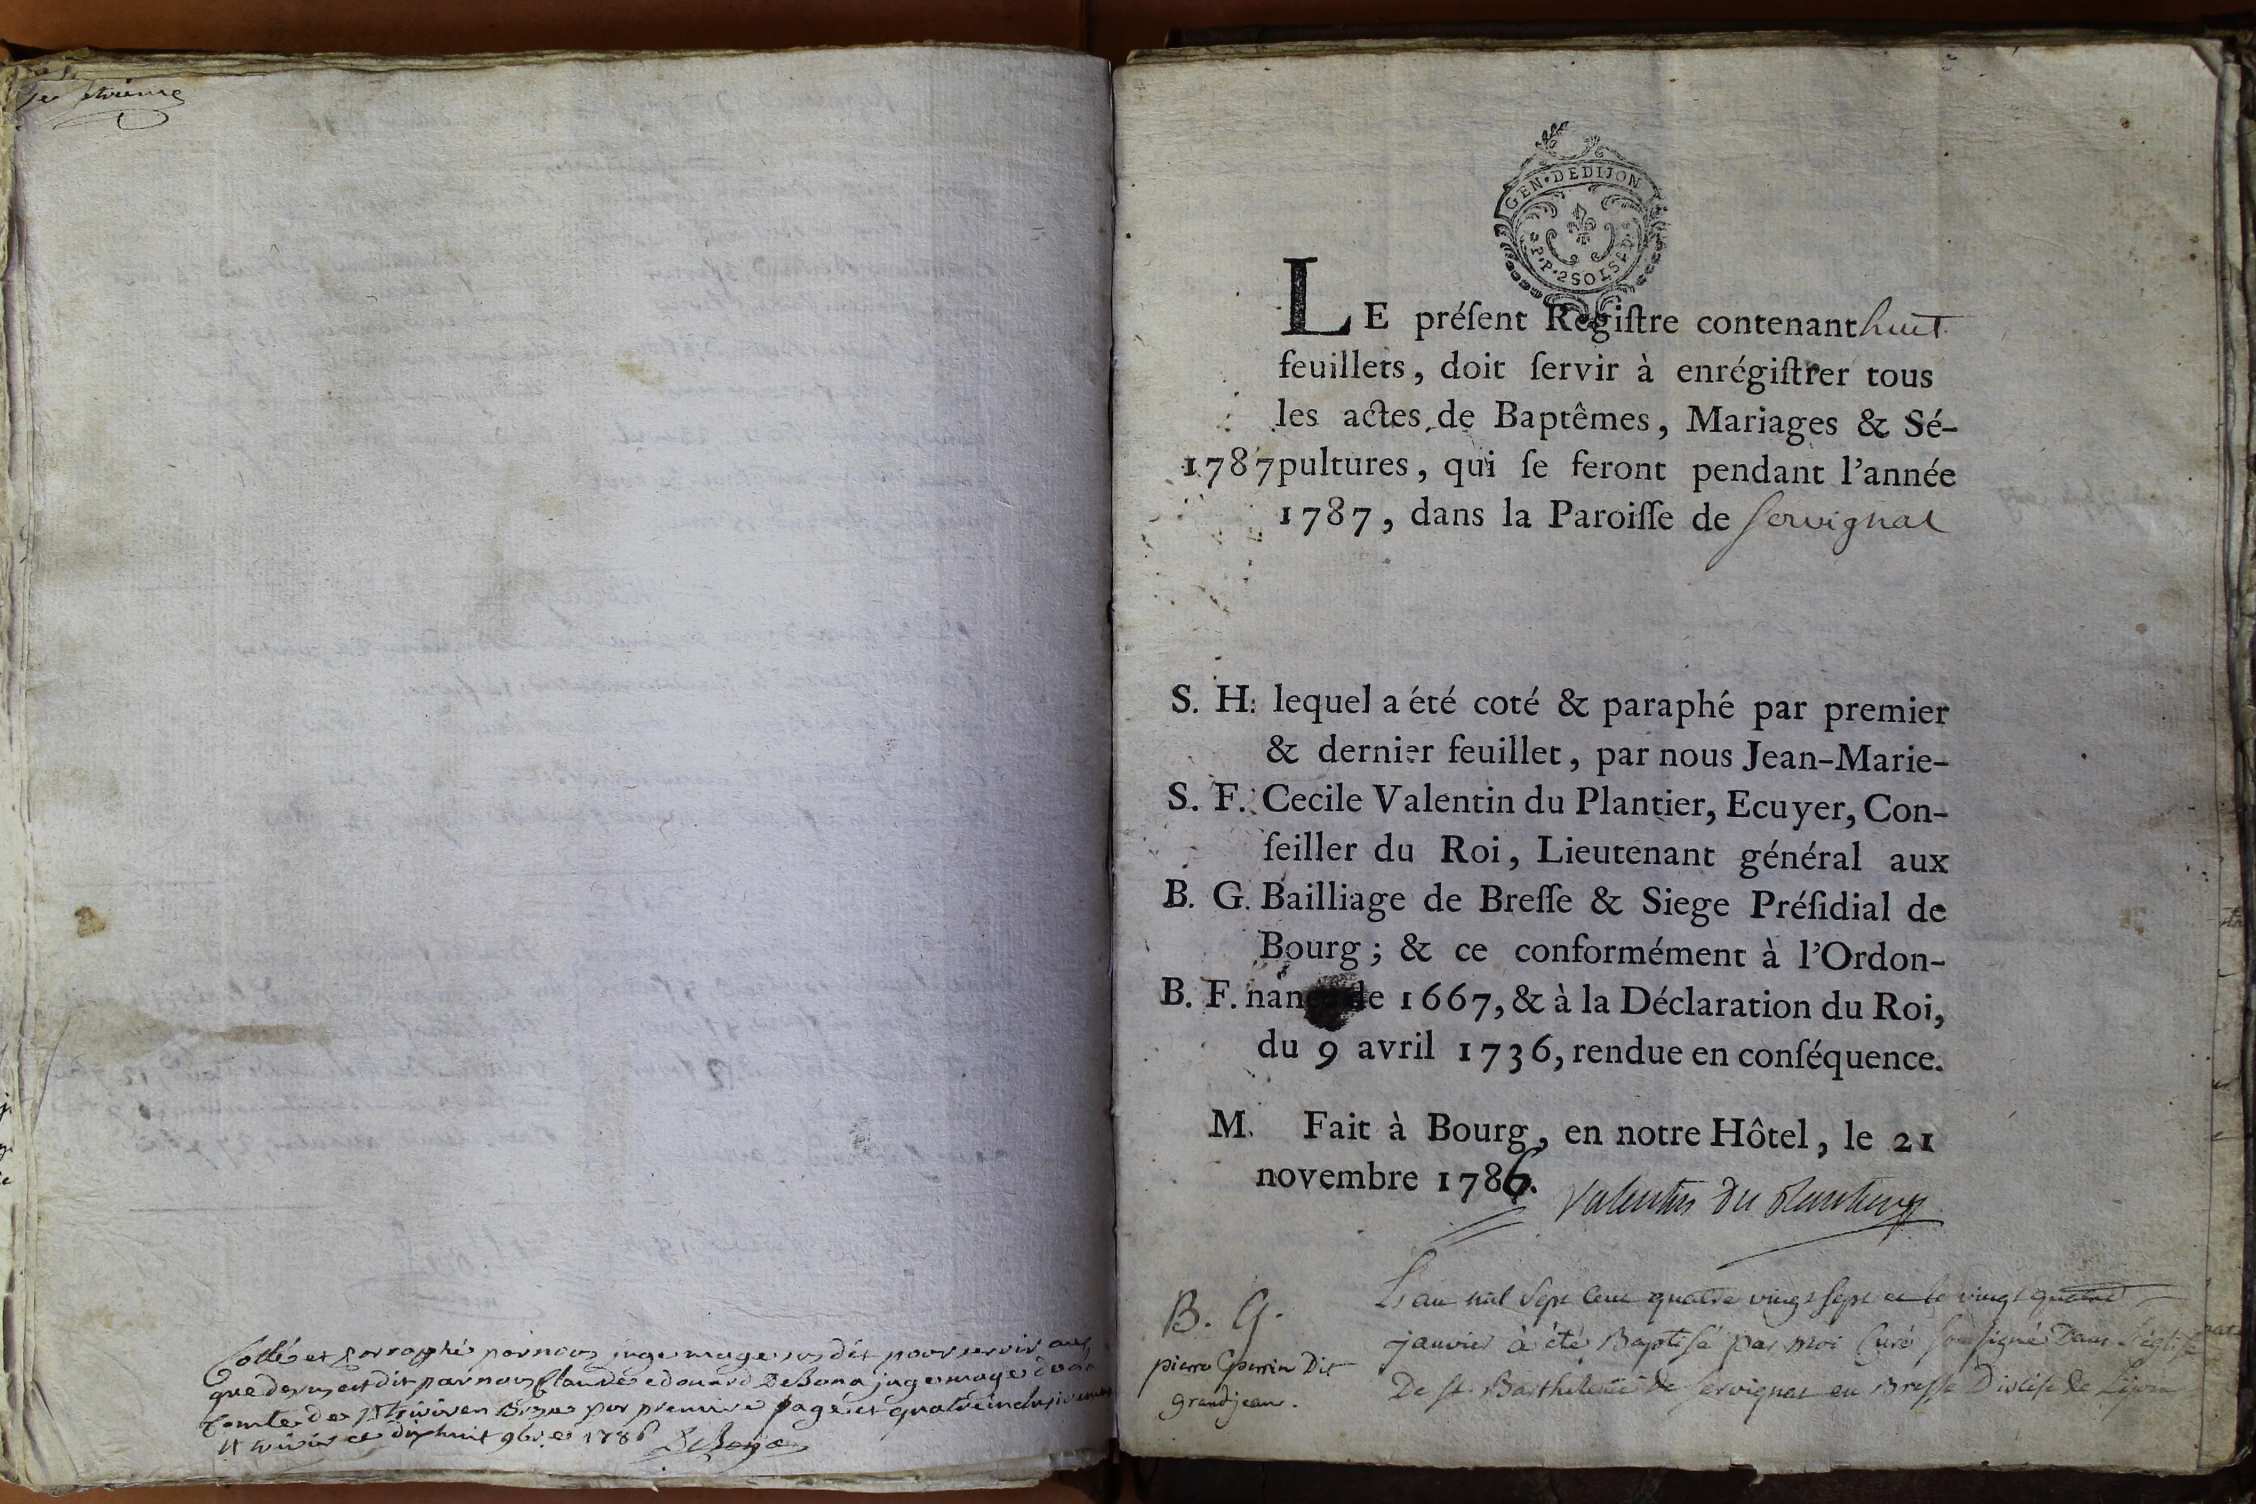 Collé et parraphé par nous juge mage sus dit pour servir aux
que dessus est dit par nous Claude edouard DeBona juge mage de la
Comté de St trivier en Bresse par premiere page et quatre inclusivement
St trivier ce dix huit 9bre 1786 DeBona
GEN·DEDIJON
P·P·2SOLS
LE préſent Regiſtre contenant huit
feuillets, doit ſervir à enrégiſtrer tous
les actes de Baptêmes, Mariages & Sé-
1787 pultures, qui ſe feront pendant l'année
1787, dans la Paroiſſe de Servignat
S. H. lequel a été coté & paraphé par premier
& dernier feuillet, par nous Jean-Marie-
S. F. Cecile Valentin du Plantier, Ecuyer, Con-
ſeiller du Roi, Lieutenant général aux
B. G. Bailliage de Breſſe & Siege Préſidial de
Bourg ; & ce conformément à l'Ordon-
B. F. nance de 1667, & à la Déclaration du Roi,
du 9 avril 1736, rendue en conſéquence.
M. Fait à Bourg, en notre Hôtel, le 21
novembre 1786.
Valentin du Plantier
B. G.
pierre Perrin Dit
grandjean.
L'an mil Sept Cent quatre vingt Sept et le vingt quatre
janvier à été Baptisé par moi Curé soussigné Dans l'église
De St. Barthelemi de Servignat en Bresse Diocèse de Lyon